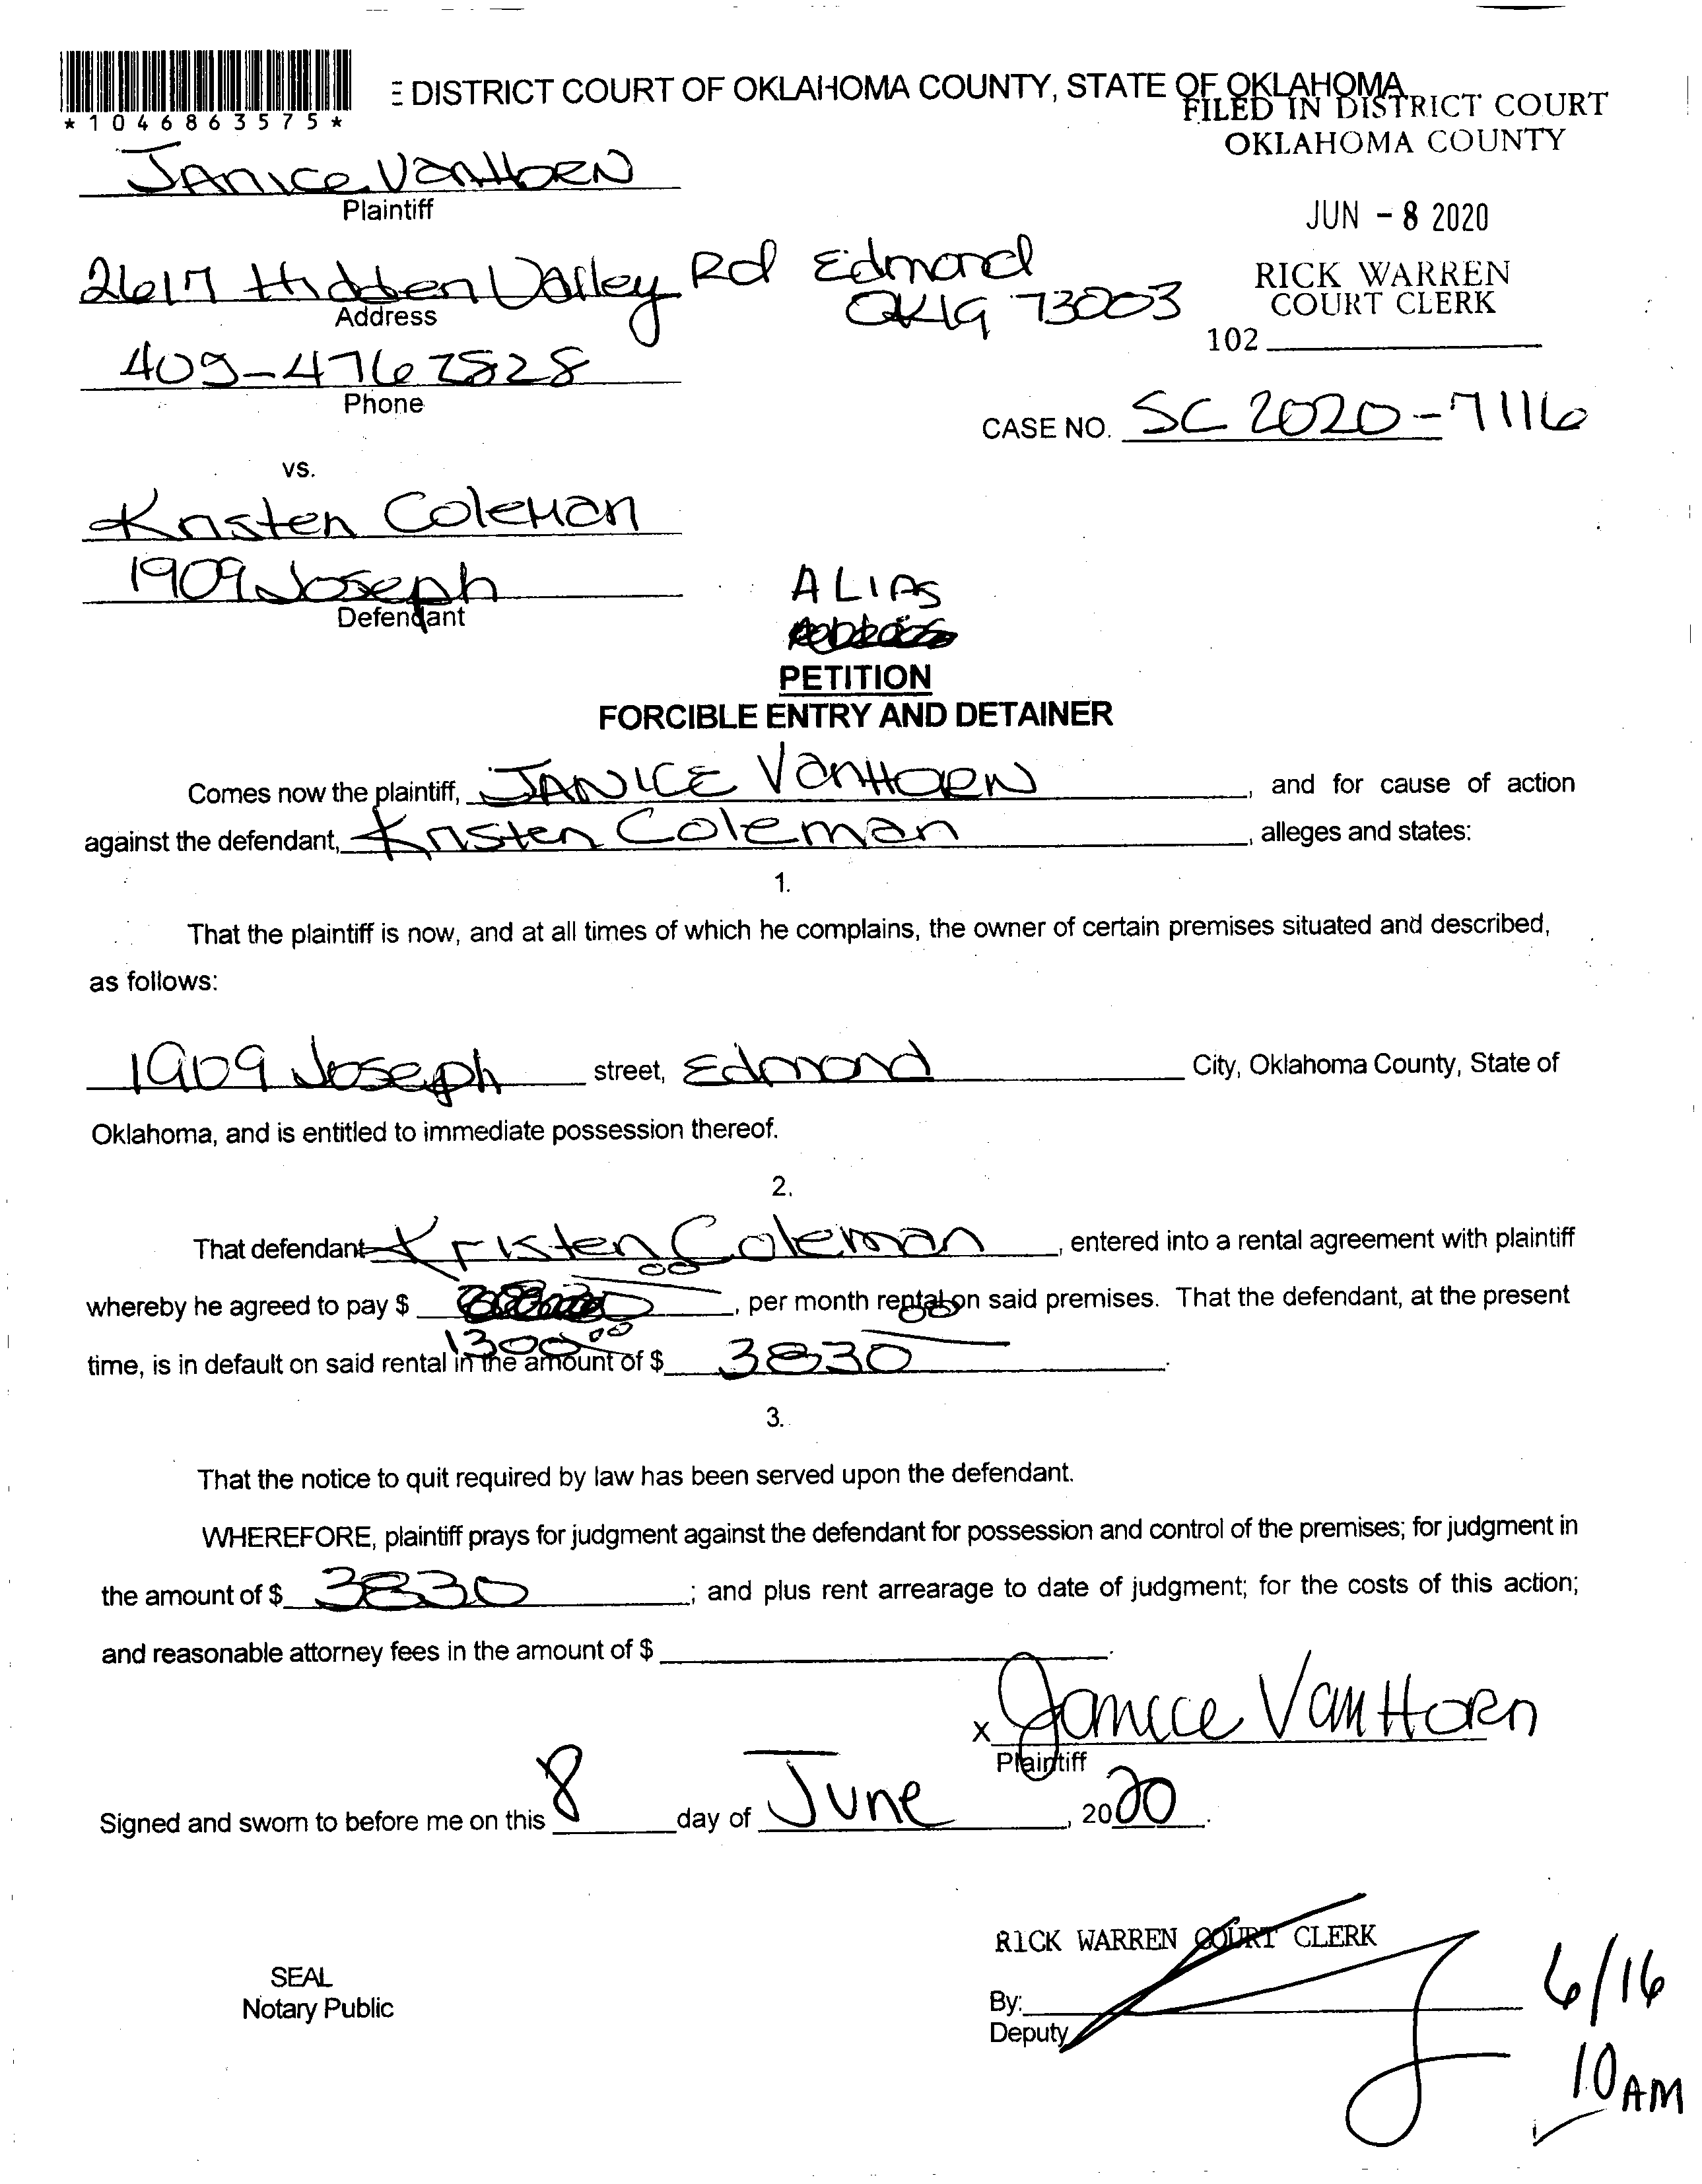 DISTRICT COURT OF OKLAHOMA COUNTY, STATE OF OKLAHOMA
FILED IN DISTRICT COURT
OKLAHOMA COUNTY
*1046863575*
JANICE VANHORN
Plaintiff
JUN - 8 2020
2617 Hidden Valley Rd Edmond
Okla 73003
Address
RICK WARREN
COURT CLERK
102
405-476 2828
Phone
CASE NO. SC 2020-7116
vs.
Kristen Coleman
1909 Joseph
Defendant
ALIAS
PETITION
FORCIBLE ENTRY AND DETAINER
Comes now the plaintiff, JANICE VANHORN, and for cause of action
against the defendant, Kristen Coleman, alleges and states:
1.
That the plaintiff is now, and at all times of which he complains, the owner of certain premises situated and described,
as follows:
1909 Joseph street, Edmond City, Oklahoma County, State of
Oklahoma, and is entitled to immediate possession thereof.
2.
That defendant Kristen Coleman, entered into a rental agreement with plaintiff
whereby he agreed to pay $ , per month rental on said premises. That the defendant, at the present
1300.00
time, is in default on said rental in the amount of $ 3830 00.
3.
That the notice to quit required by law has been served upon the defendant.
WHEREFORE, plaintiff prays for judgment against the defendant for possession and control of the premises; for judgment in
the amount of $ 3830; and plus rent arrearage to date of judgment; for the costs of this action;
and reasonable attorney fees in the amount of $ .
x Janice VanHorn
Plaintiff
Signed and sworn to before me on this 8 day of June, 2020.
RICK WARREN COURT CLERK
SEAL
Notary Public
By:
Deputy
6/16
10 AM